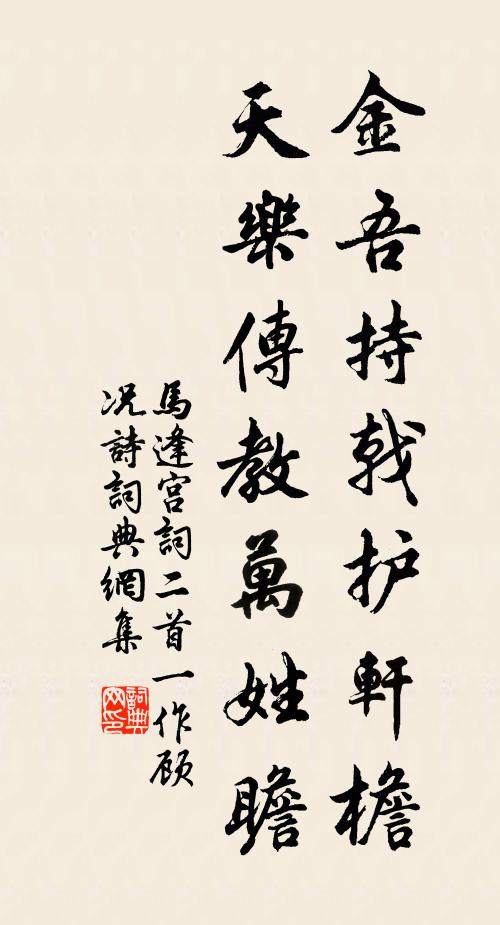 金吾持戟护軒檐
天樂傳教萬姓瞻
馬逢宮詞二首一作顾
况詩詞典網集
詞典網印